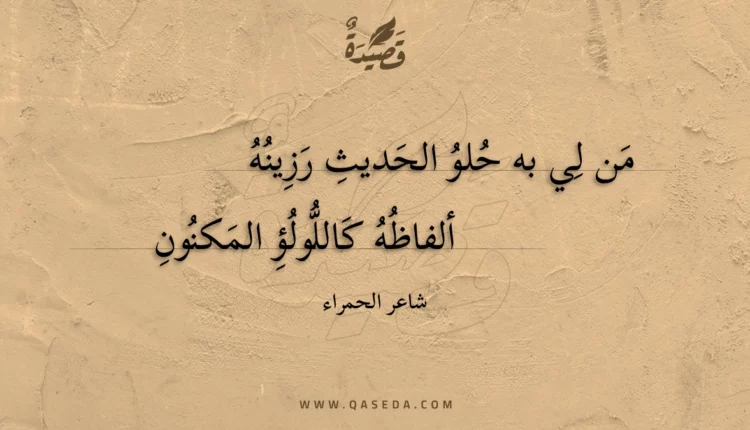 قَصِيدَةٌ
مَن لِي به حُلوُ الحَديثِ رَزِينُهُ
ألفاظُهُ كَاللُّولُؤِ المَكنُونِ
شاعر الحمراء
WWW.QASEDA.COM